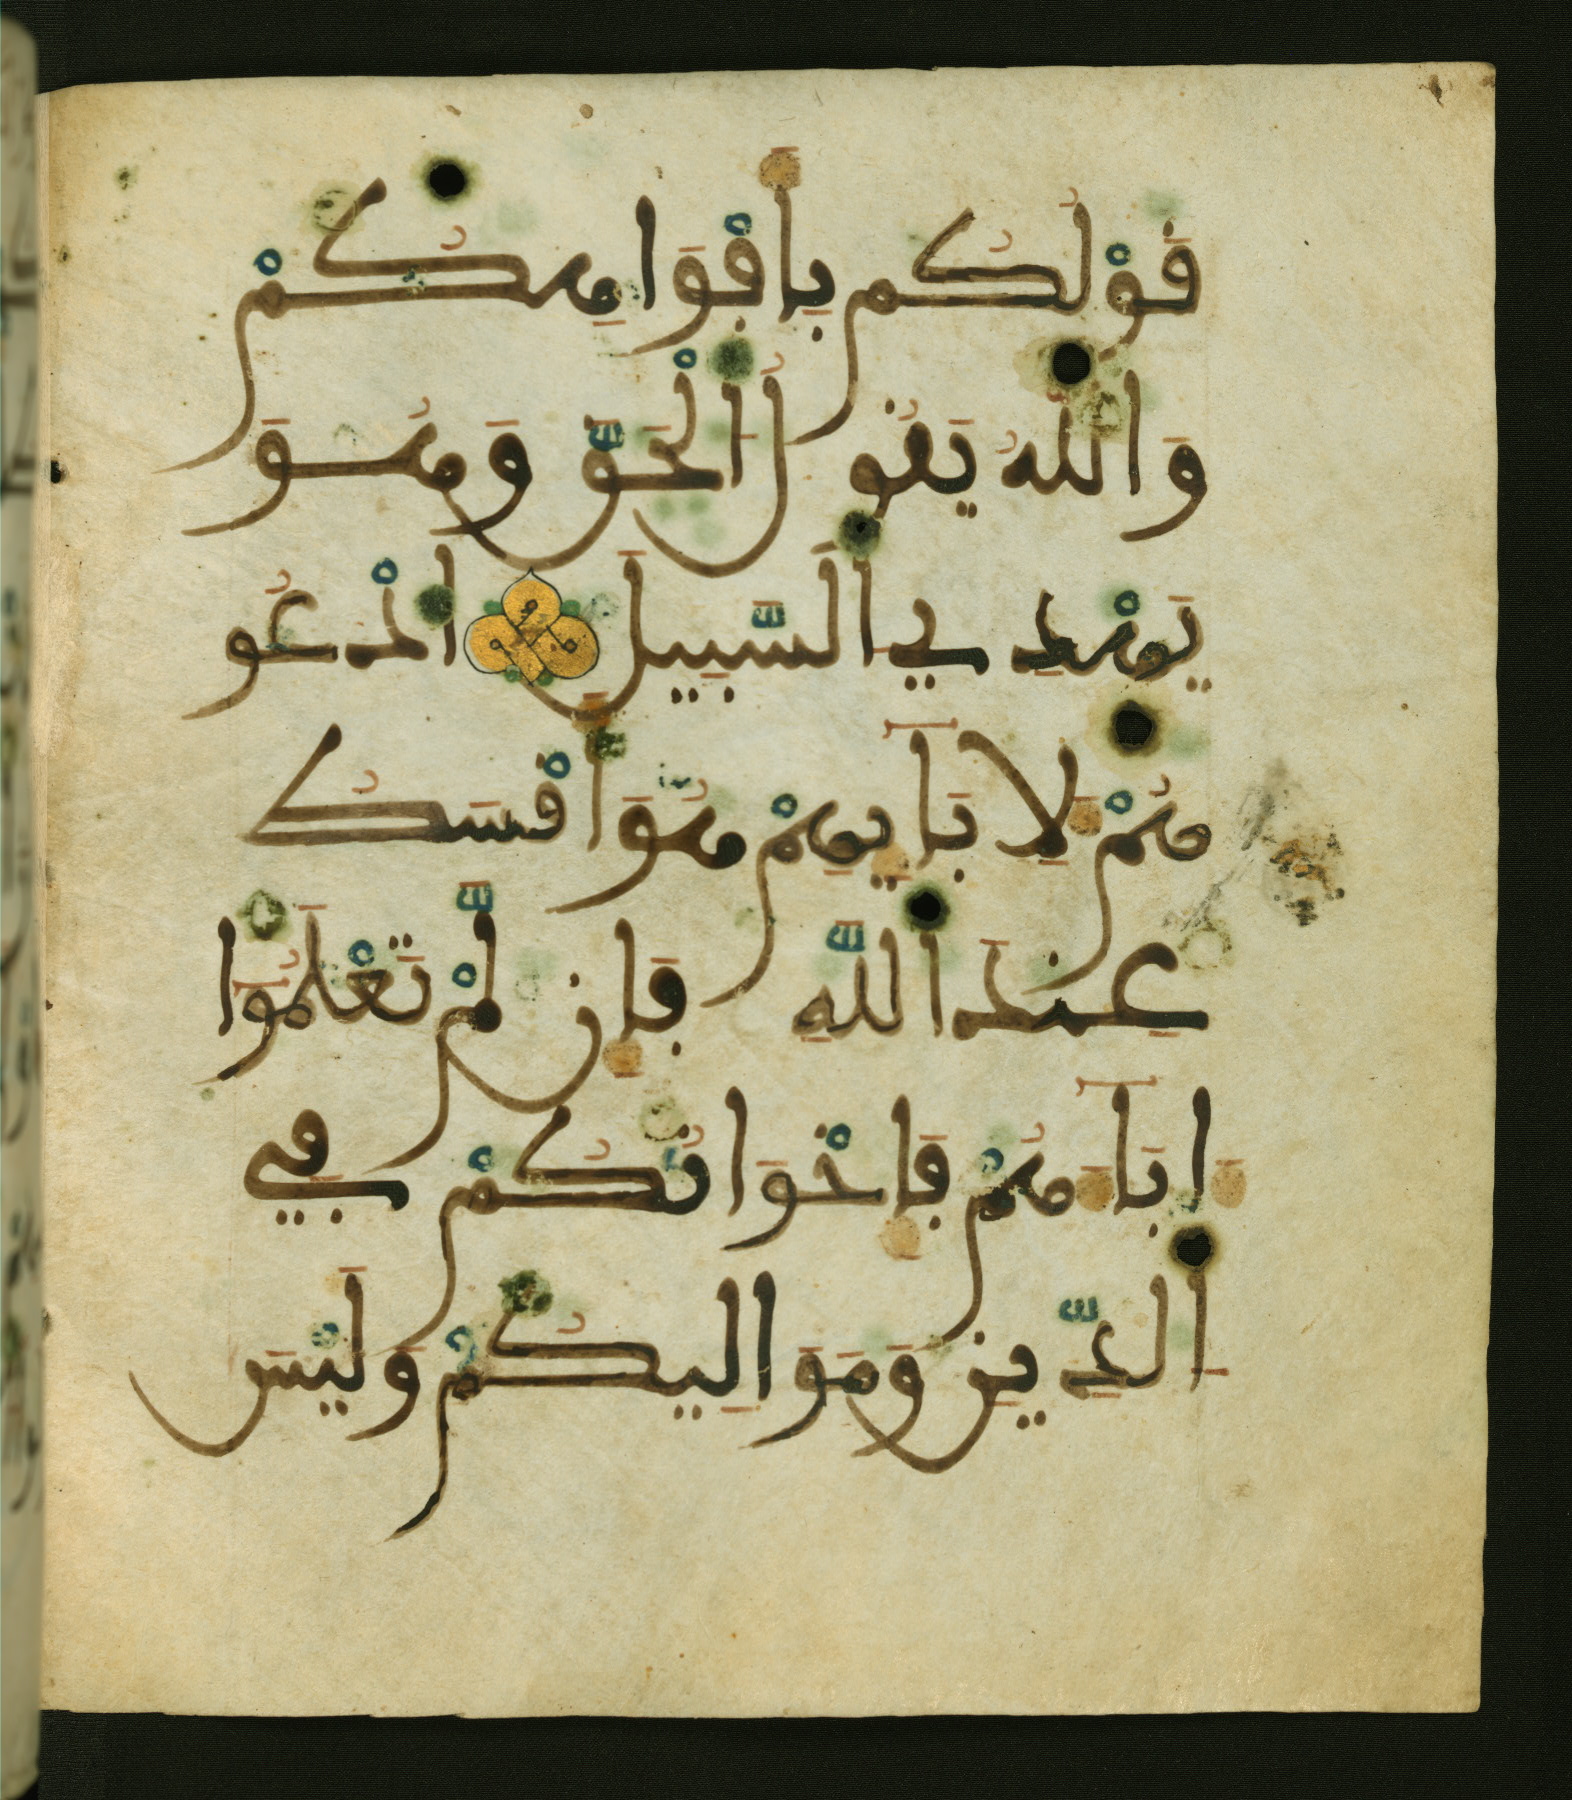 قَوْلُكُم بِأَفْوَاهِكُمْ
وَاللَّهُ يَقُولُ الْحَقَّ وَهُوَ
يَهْدِي السَّبِيلَ ادْعُو
هُمْ لِأَبَايِهِمْ هُوَ أَقْسَطُ
عِندَ اللَّهِ فَإِن لَّمْ تَعْلَمُوا
ءَابَاءَهُمْ فَإِخْوَانُكُمْ فِي
الدِّينِ وَمَوَالِيكُمْ وَلَيْسَ